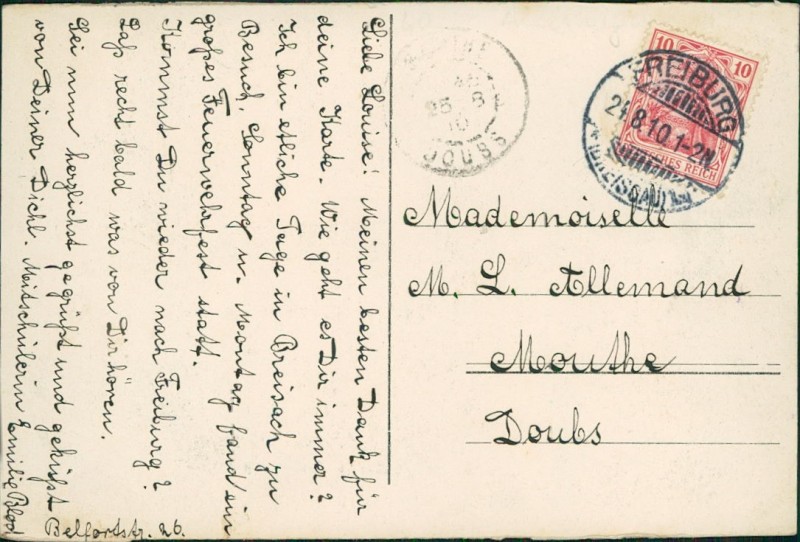 Liebe Louise! Meinen besten Dank für
deine Karte. Wie geht es Dir immer?
Ich bin etliche Tage in Breisach zu
Besuch. Sonntag u. Montag fand ein
großes Feuerwehrfest statt.
Kommst Du wieder nach Freiburg?
Laß recht bald was von Dir hören.
Sei nun herzlichst gegrüßt und geküßt
von Deiner Dichl. Mitschülerin Emilie
Belfortstr. 26.
10 10
DEUTSCHES REICH
FREIBURG
24.8.10.1-2N.
(BREISGAU)
MOUTHE
25 8
10
DOUBS
Mademoiselle
M. L. Allemand
Mouthe
Doubs